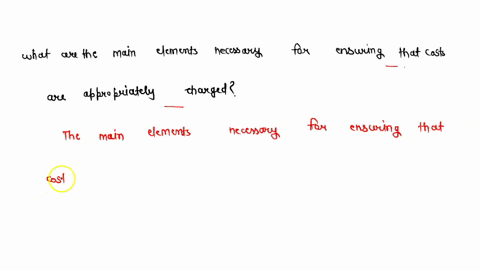 what are the main elements necessary for ensuring that costs
are appropriately charged?
The main elements necessary for ensuring that
cost